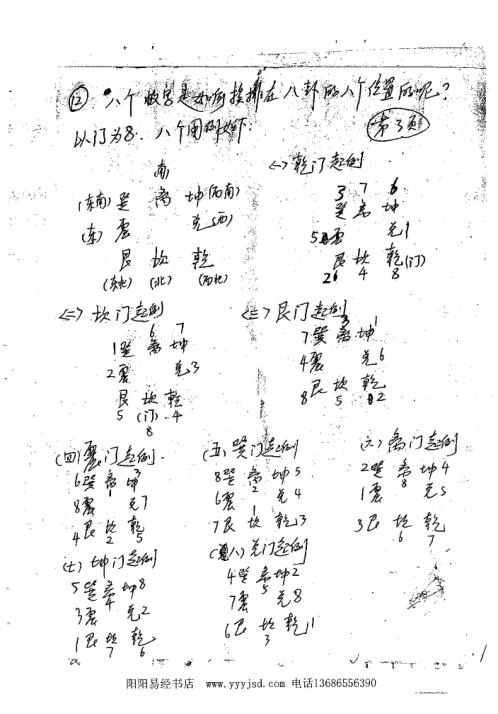 ⑫ 八个数字是如何按排在八卦的八个位置的呢?
以门为8. 八个用例如下: 第3页
南
(东南)巽 离 坤(西南)
(东)震 兑(西)
艮 坎 乾
(东北) (北) (西北)
<一>乾门起例
3 7 6
巽 离 坤
5震 兑1
艮 坎 乾(门)
2 4 8
<二>坎门起例
6 7
1巽 离 坤
2震 兑3
艮 坎 乾
5 (门) 4
8
<三>艮门起例
3 1
7巽 离 坤
4震 兑6
8艮 坎 乾
5 2
(四)震门起例
3
6巽 离 坤
8震 1 兑7
4艮 坎 乾
2 5
(五)巽门起例
8巽 离 坤5
6震 2 兑4
1
7艮 坎 乾3
(六)离门起例
2巽 离 坤4
1震 8 兑5
3艮 坎 乾
6 7
(七)坤门起例
5巽 离 坤8
3震 4 兑2
1艮 坎 乾
7 6
(八)兑门起例
4巽 离 坤2
7震 5 兑8
6艮 坎 乾1
3
阳阳易经书店 www.yyyjsd.com 电话13686556390